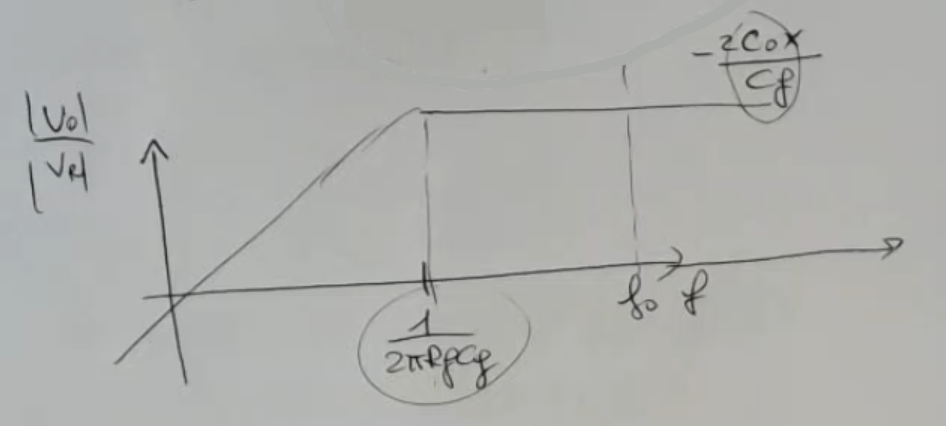 |Vo|
|VR|
-2Cox
Cf
1
2πRfCf
fo f